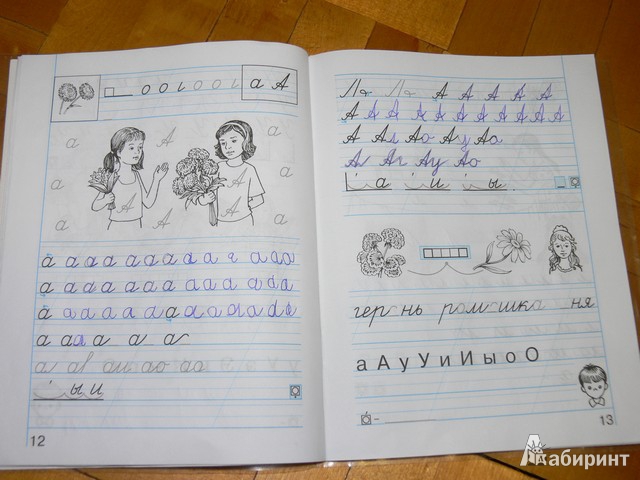 а А
а А А
а А а
А а
а
а а а а а а а а г а аа
а а а а а а а а а а а
а а а а а а а а а а а
а аа а а а
а аи ао аа
ы и
12
А А А А А
А А А А А А А А А А
А Ал Ао Ау Ао
А Аг Ау Ао
а и ы
гер нь ромашка ня
а А у У и И ы о О
13
Лабиринт